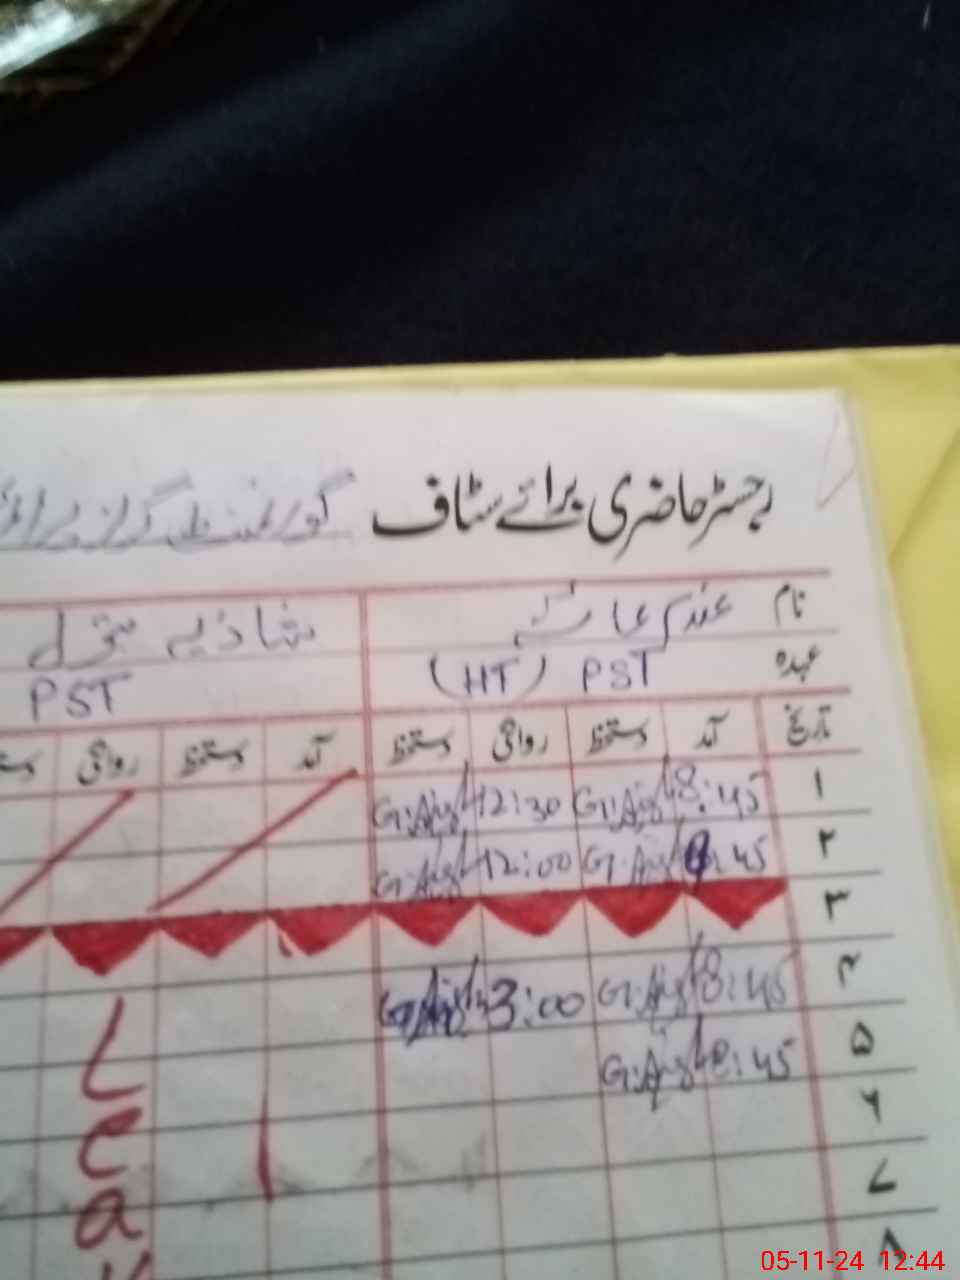 رجسٹر حاضری برائے سٹاف گورنمنٹ گرلز پرائمری
نام شازیہ
عہدہ PST (HT) PST
تاریخ آمد دستخط روانگی دستخط آمد دستخط روانگی
۱ 8:45 G.Aish 12:30 G.Aish
۲ 8:45 G.Aish 12:00 G.Aish
۳
۴ 8:45 G.Aish 3:00 G.Aish
۵ 8:45 G.Aish
۶
۷
۸
Lea
05-11-24 12:44